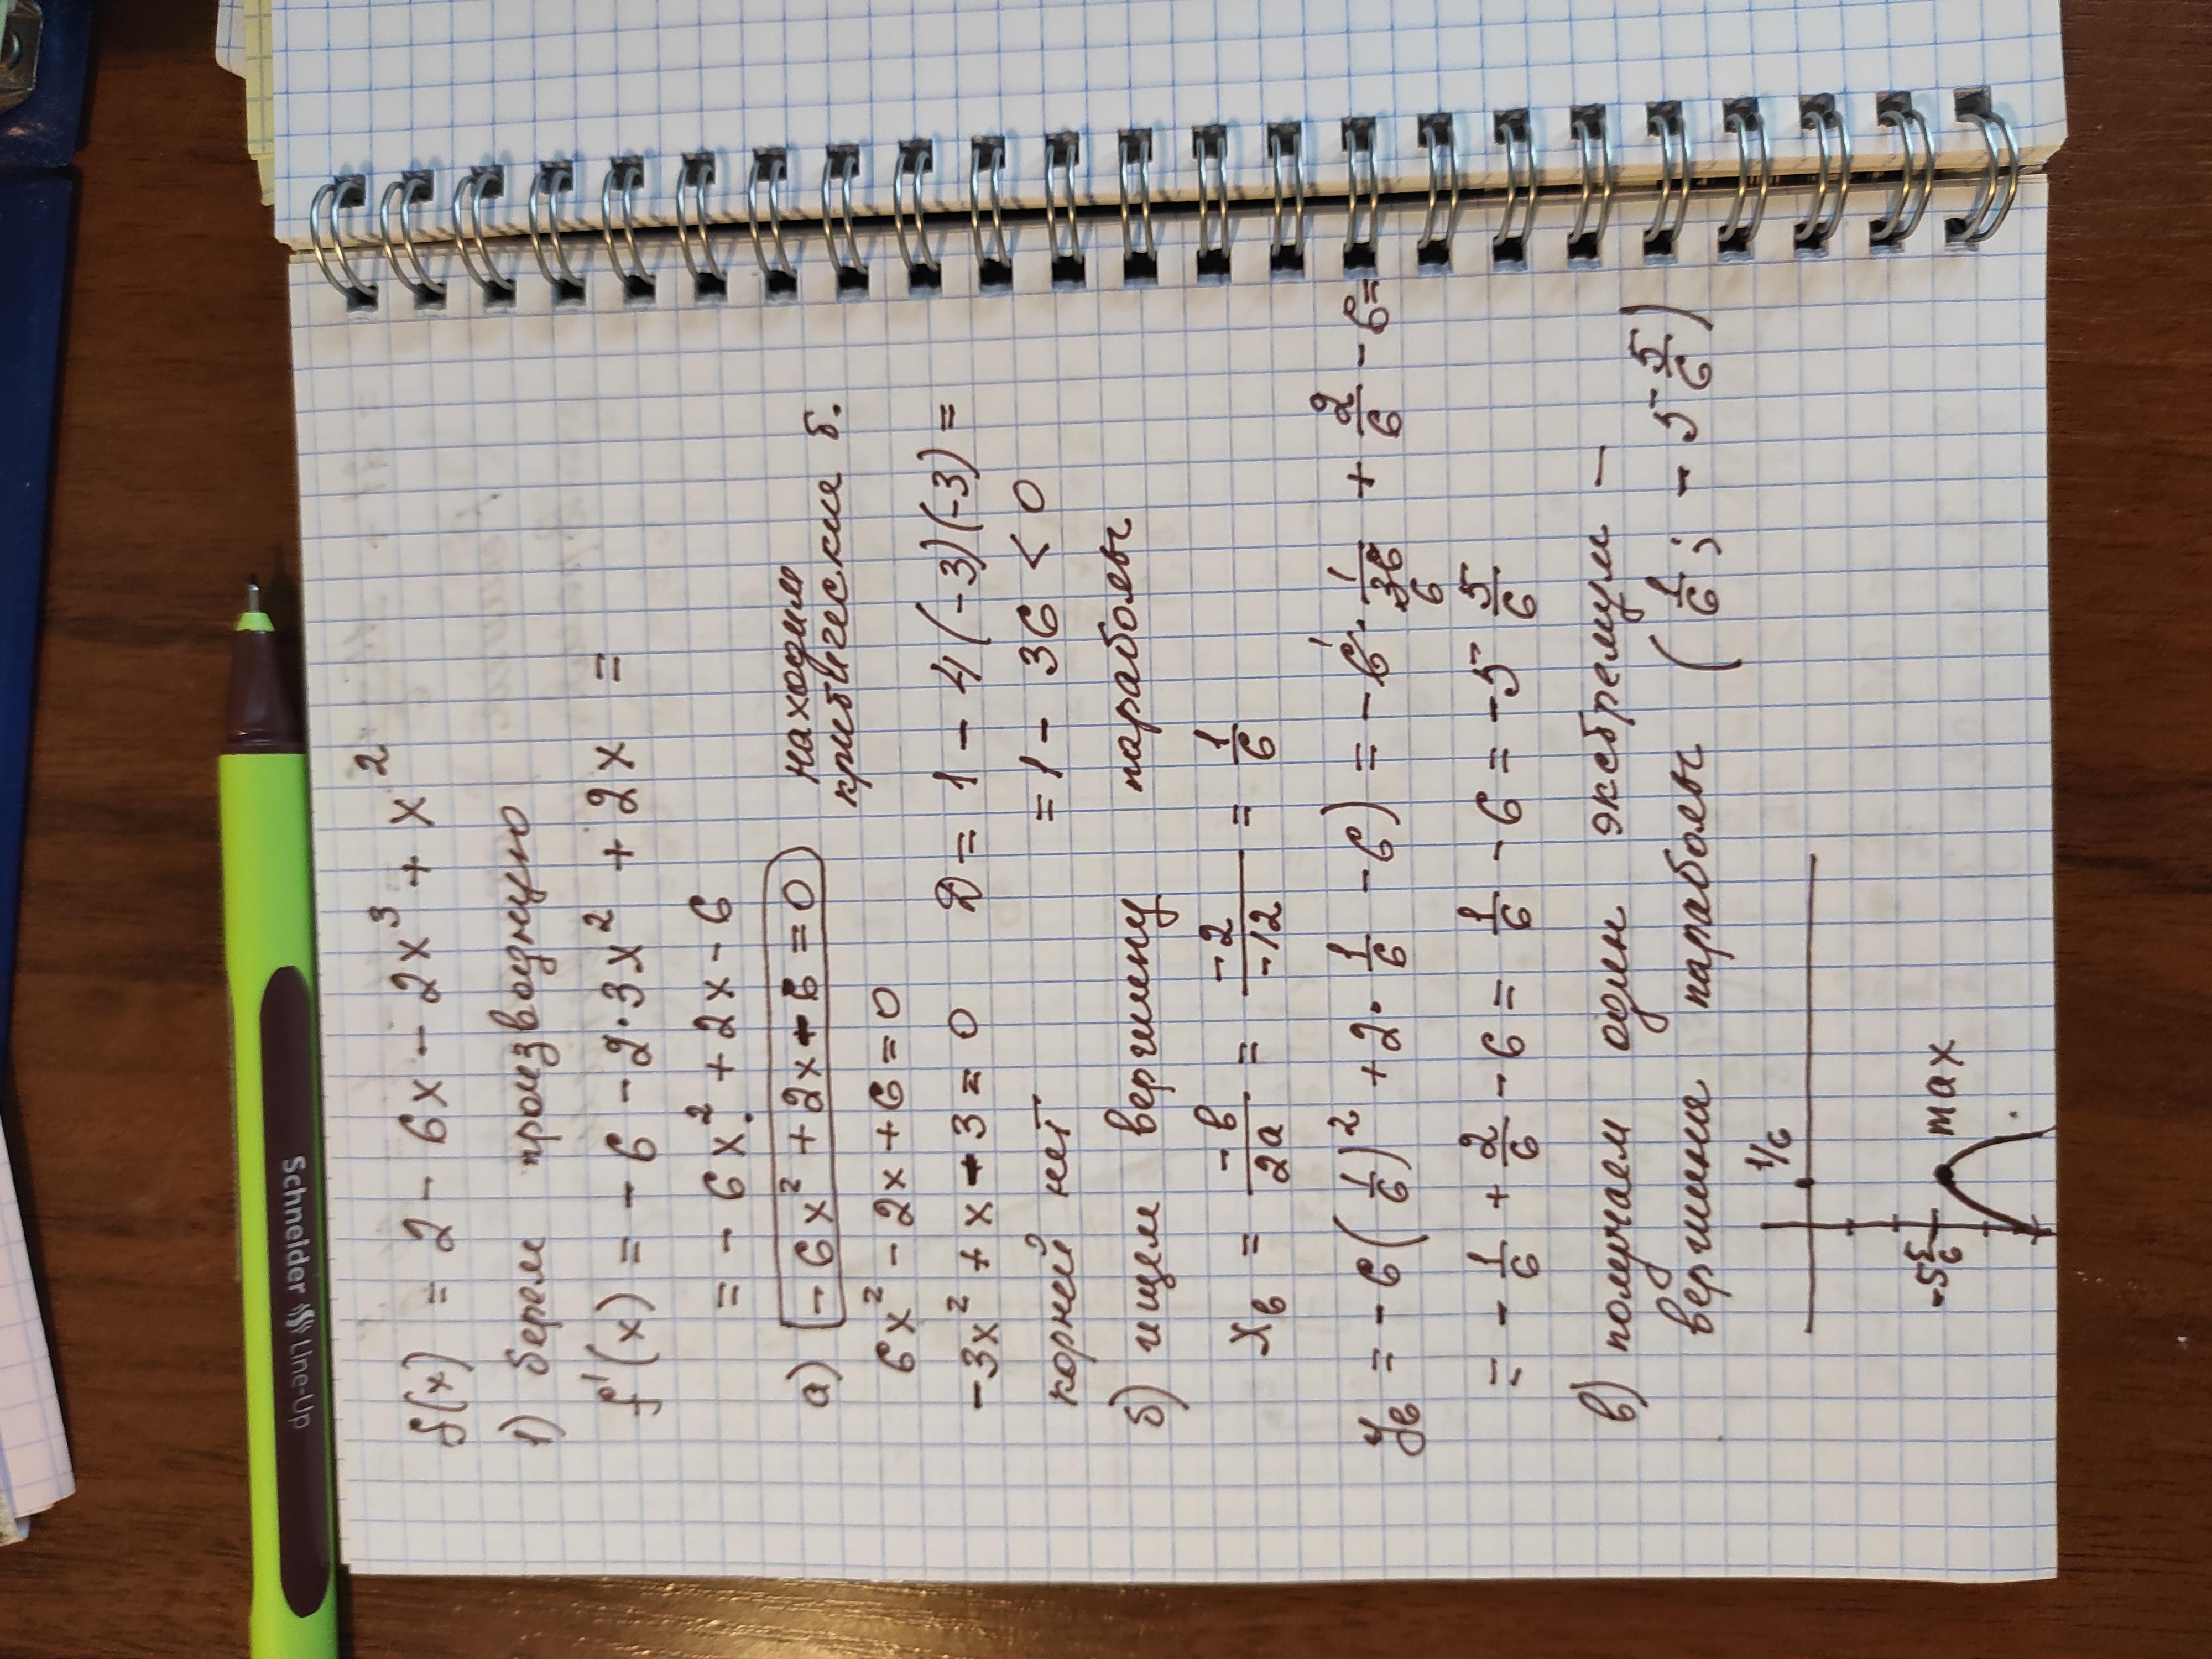 f(x) = 2 - 6x - 2x³ + x²
1) берем производную
f'(x) = - 6 - 2·3x² + 2x =
= - 6x² + 2x - 6
а) - 6x² + 2x - 6 = 0 находим критически б.
6x² - 2x + 6 = 0
-3x² + x - 3 = 0 D = 1 - 4(-3)(-3) =
корней нет = 1 - 36 < 0
б) ищем вершину параболы
xв = -b/2a = -2/-12 = 1/6
yв = - 6(1/6)² + 2·1/6 - 6) = - 6·1/36 + 2/6 - 6 =
= - 1/6 + 2/6 - 6 = 1/6 - 6 = -5 5/6
в) получаем один экстремум -
вершина параболы (1/6; -5 5/6)
1/6
-5 5/6
max
Schneider Line-Up